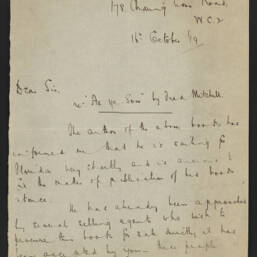 178 Charing Cross Road,
W.C.2
16th October /19
Dear Sir,
"As ye Sow" by Fred Mitchell.
The author of the above book has
informed me that he is sailing for
very shortly and is anxious to
fix the matter of publication of his book
at once.
He has already been approached
by several selling agents who wish to
procure this book for sale directly it has
been accepted by you. These people